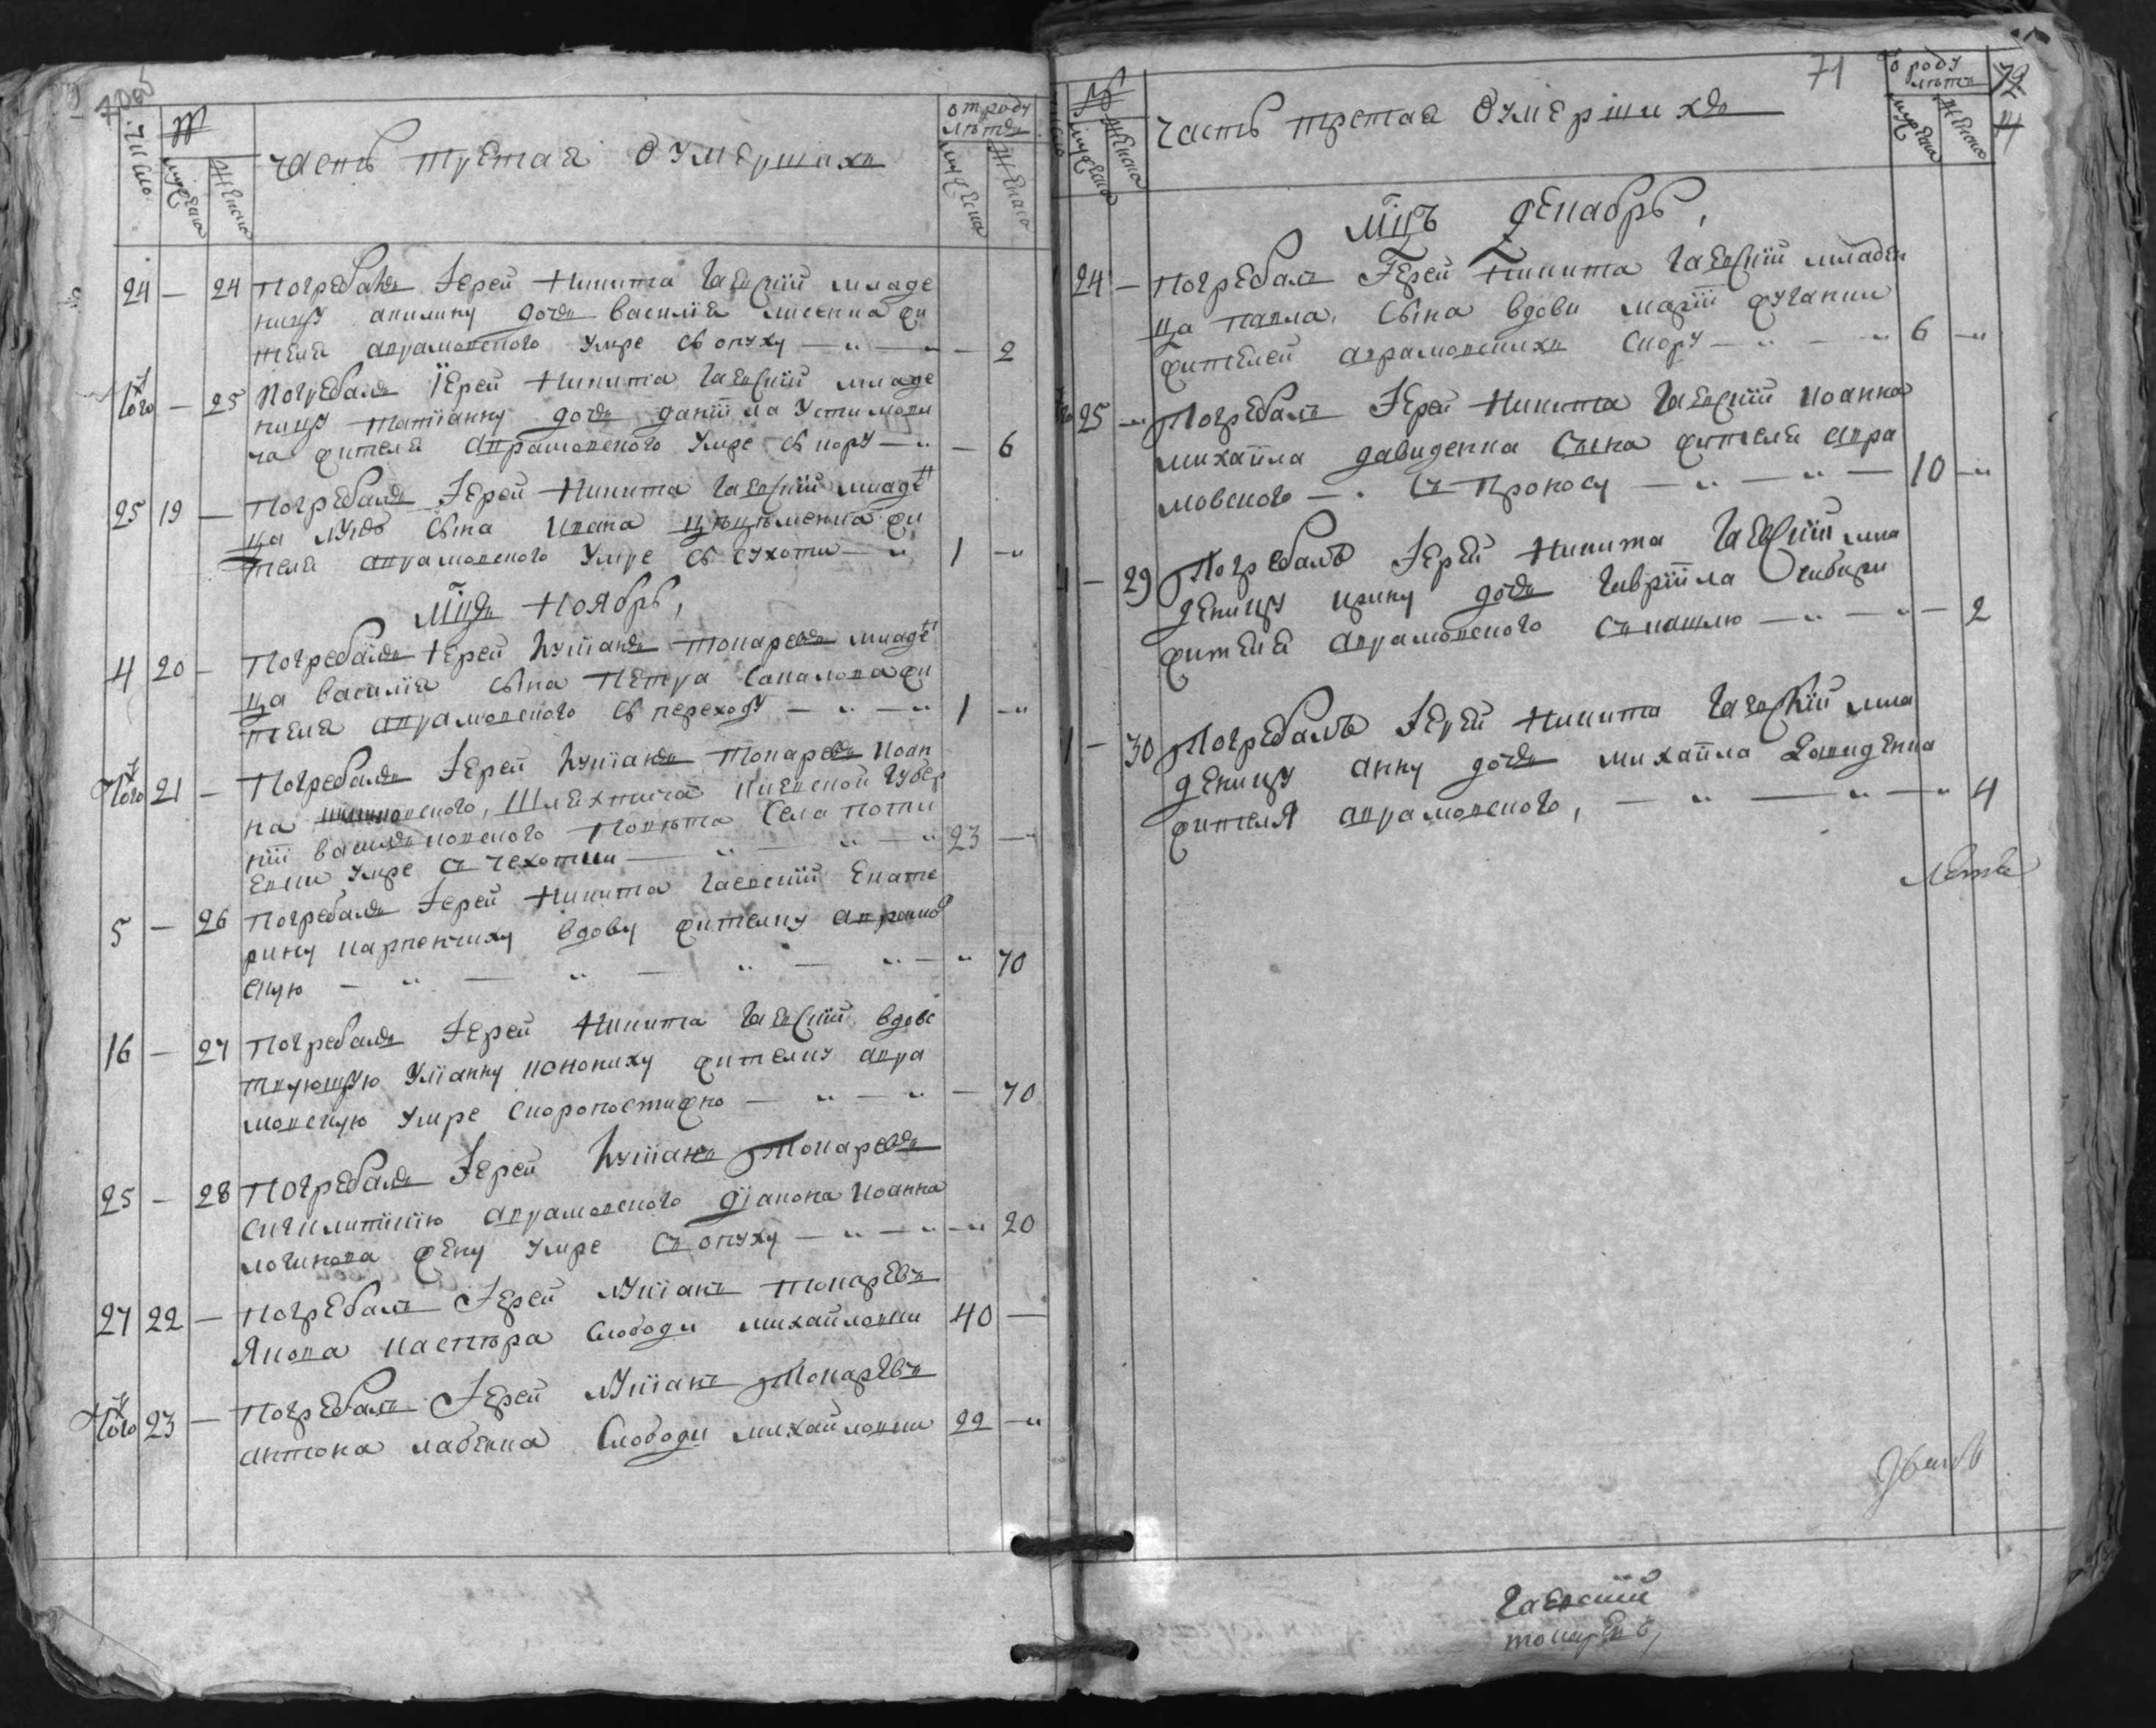 число № мужеска женска
часть третая о умершихъ
отроду лѣтъ мужеска женска
24 — 24 погребалъ Іерей Никита Гаевскій младе
ницу акилину дочь василіа лисенка жи
теля аврамовского умре съ опуху — 2
того ж — 25 погребалъ Іерей Никита Гаевскій младе
ницу татіанну дочь даніила Устимови
ча жителя аврамовского умре съ кору — 6
25 19 — погребалъ Іерей Никита Гаевскій младен
ца сына Ивана жи
теля аврамовского умре съ сухоти 1 —
мцъ Ноябрь,
4 20 — погребалъ Іерей Лукіанъ Токаревъ младен
ца василіа сына Петра жи
теля аврамовского съ переходу 1 —
того ж 21 — погребалъ Іерей Лукіанъ Токаревъ иоан
на Шляхтича кіевской губер
ніи василковского повѣта села поти
евки умре съ чехотки 23 —
5 — 26 погребалъ Іерей Никита Гаевскій екате
рину карпенчиху вдову жителку аврамов
скую — 70
16 — 27 погребалъ Іерей Никита Гаевскій вдовс
твующую Уліанну конониху жителку авра
мовскую умре скоропостижно — 70
25 — 28 погребалъ Іерей Лукіанъ Токаревъ
сигклитикію аврамовского діакона иоанна
логинова жену умре съ опуху 20
27 22 — погребалъ Іерей Лукіанъ Токаревъ
Якова кастюра слободи михайловки 40 —
того ж 23 — погребалъ Іерей Лукіанъ Токаревъ
антона лабенка слободи михайловки 22 —
№ мужеска женска
часть третая о умершихъ
71
о роду лѣтъ мужеска женска
мцъ декабрь,
24 — погребалъ Іерей Никита Гаевскій младен
ца павла, сына вдови маріи
жителей аврамовскихъ скору 6 —
25 — погребалъ Іерей Никита Гаевскій иоанна
михаила давиденка сына жителя авра
мовского — съ проносу 10 —
— 29 погребалъ Іерей Никита Гаевскій мла
деницу ирину дочь гавріила
жителя аврамовского съ кашлю — 2
— 30 погребалъ Іерей Никита Гаевскій мла
деницу анну дочь михаила давиденка
жителя аврамовского, — 4
Гаевскій
токаревъ